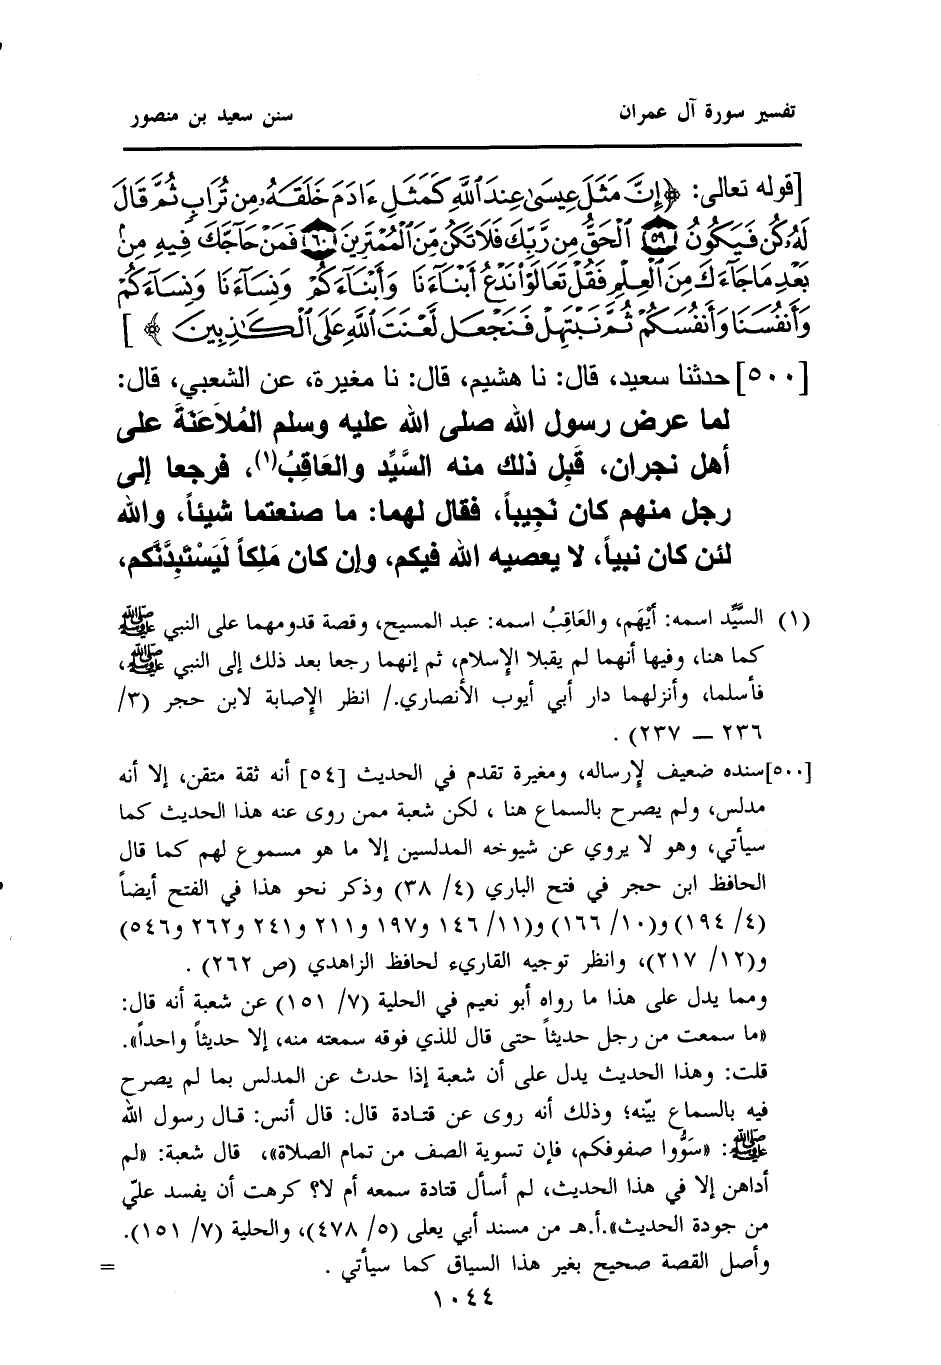 تفسير سورة آل عمران
سنن سعيد بن منصور
[قوله تعالى: ﴿إِنَّ مَثَلَ عِيسَىٰ عِندَ ٱللَّهِ كَمَثَلِ ءَادَمَ خَلَقَهُۥ مِن تُرَابٍ ثُمَّ قَالَ
لَهُۥ كُن فَيَكُونُ ٥٩ ٱلْحَقُّ مِن رَّبِّكَ فَلَا تَكُن مِّنَ ٱلْمُمْتَرِينَ ٦٠ فَمَنْ حَآجَّكَ فِيهِ مِنۢ
بَعْدِ مَا جَآءَكَ مِنَ ٱلْعِلْمِ فَقُلْ تَعَالَوْا۟ نَدْعُ أَبْنَآءَنَا وَأَبْنَآءَكُمْ وَنِسَآءَنَا وَنِسَآءَكُمْ
وَأَنفُسَنَا وَأَنفُسَكُمْ ثُمَّ نَبْتَهِلْ فَنَجْعَل لَّعْنَتَ ٱللَّهِ عَلَى ٱلْكَـٰذِبِينَ ﴾ ]
[٥٠٠] حدثنا سعيد، قال: نا هشيم، قال: نا مغيرة، عن الشعبي، قال:
لما عرض رسول الله صلى الله عليه وسلم المُلاَعَنَةَ على
أهل نجران، قَبِل ذلك منه السَّيِّد والعَاقِبُ(١)، فرجعا إلى
رجل منهم كان نَجِيباً، فقال لهما: ما صنعتما شيئاً، والله
لئن كان نبياً، لا يعصيه الله فيكم، وإن كان مَلِكاً لَيَسْتَبِدَّنَّكم،
(١) السَّيِّد اسمه: أَيْهَم، والعَاقِبُ اسمه: عبد المسيح، وقصة قدومهما على النبي ﷺ
كما هنا، وفيها أنهما لم يقبلا الإِسلام، ثم إنهما رجعا بعد ذلك إلى النبي ﷺ،
فأسلما، وأنزلهما دار أبي أيوب الأنصاري./ انظر الإِصابة لابن حجر (٣/
٢٣٦ – ٢٣٧) .
[٥٠٠] سنده ضعيف لإِرساله، ومغيرة تقدم في الحديث [٥٤] أنه ثقة متقن، إلا أنه
مدلس، ولم يصرح بالسماع هنا ، لكن شعبة ممن روى عنه هذا الحديث كما
سيأتي، وهو لا يروي عن شيوخه المدلسين إلا ما هو مسموع لهم كما قال
الحافظ ابن حجر في فتح الباري (٤/ ٣٨) وذكر نحو هذا في الفتح أيضاً
(٤/ ١٩٤) و(١٠/ ١٦٦) و(١١/ ١٤٦ و١٩٧ و٢١١ و٢٤١ و٢٦٢ و٥٤٦)
و(١٢/ ٢١٧)، وانظر توجيه القاريء لحافظ الزاهدي (ص ٢٦٢) .
ومما يدل على هذا ما رواه أبو نعيم في الحلية (٧/ ١٥١) عن شعبة أنه قال:
«ما سمعت من رجل حديثاً حتى قال للذي فوقه سمعته منه، إلا حديثاً واحداً».
قلت: وهذا الحديث يدل على أن شعبة إذا حدث عن المدلس بما لم يصرح
فيه بالسماع بيّنه؛ وذلك أنه روى عن قتادة قال: قال أنس: قال رسول الله
ﷺ: «سَوُّوا صفوفكم، فإن تسوية الصف من تمام الصلاة»، قال شعبة: «لم
أداهن إلا في هذا الحديث، لم أسأل قتادة سمعه أم لا؟ كرهت أن يفسد عليّ
من جودة الحديث».أ.هـ من مسند أبي يعلى (٥/ ٤٧٨)، والحلية (٧/ ١٥١).
وأصل القصة صحيح بغير هذا السياق كما سيأتي .
=
١٠٤٤